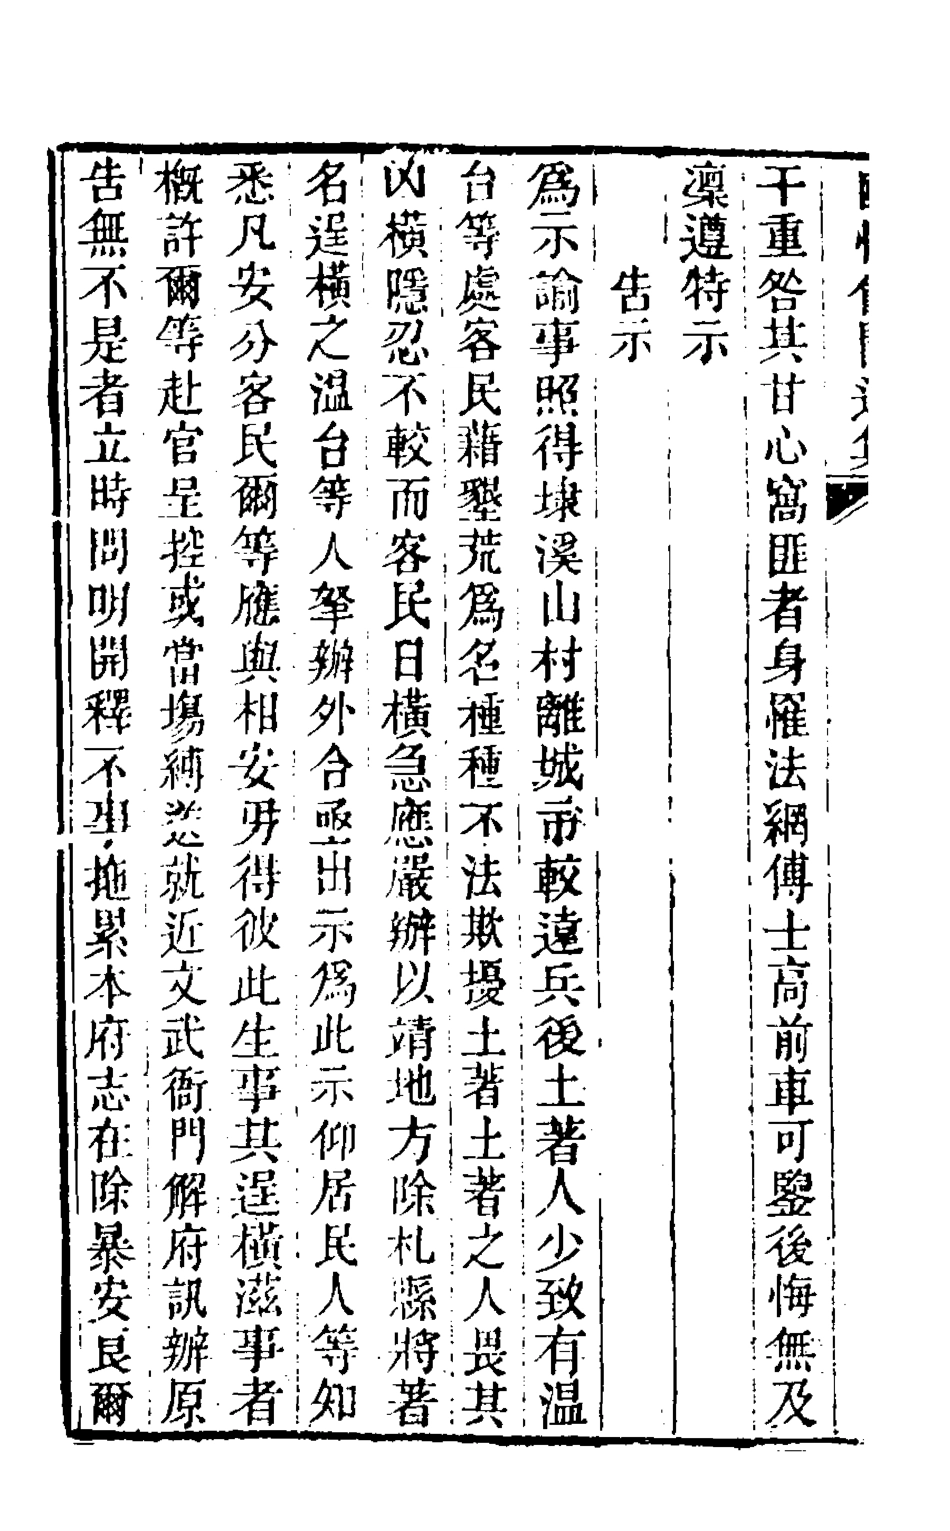 干重咎其甘心窩匪者身罹法網傅士高前車可鑒後悔無及
凜遵特示
告示
爲示諭事照得埭溪山村離城市較遠兵後土著人少致有温
台等處客民藉墾荒爲名種種不法欺擾土著土著之人畏其
凶橫隱忍不較而客民日橫急應嚴辦以靖地方除札縣將著
名逞橫之温台等人拏辦外合亟出示爲此示仰居民人等知
悉凡安分客民爾等應與相安毋得彼此生事其逞橫滋事者
概許爾等赴官呈控或當塲縛送就近文武衙門解府訊辦原
告無不是者立時問明開釋不事拖累本府志在除暴安良爾